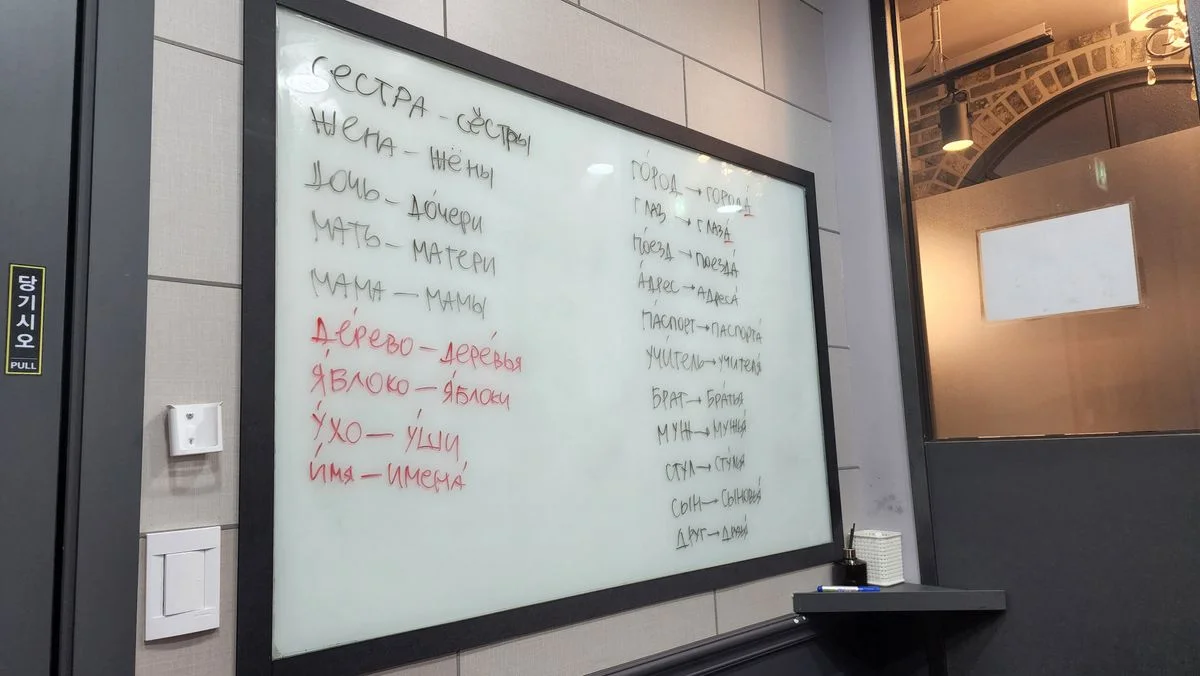 당기시오
PULL
СЕСТРА – СЁСТРЫ
ЖЕНА – ЖЁНЫ
ДОЧЬ – ДО́ЧЕРИ
МАТЬ – МАТЕРИ
МАМА — МАМЫ
ДЕ́РЕВО – ДЕРЕ́ВЬЯ
Я́БЛОКО – Я́БЛОКИ
У́ХО — У́ШИ
И́МЯ – ИМЕНА́
ГО́РОД → ГОРОДА́
ГЛАЗ → ГЛАЗА́
ПО́ЕЗД → ПОЕЗДА́
А́ДРЕС → АДРЕСА́
ПА́СПОРТ → ПАСПОРТА́
УЧИ́ТЕЛЬ → УЧИТЕЛЯ́
БРАТ → БРА́ТЬЯ
МУЖ → МУЖЬЯ́
СТУЛ → СТУ́ЛЬЯ
СЫН → СЫНОВЬЯ́
ДРУГ →